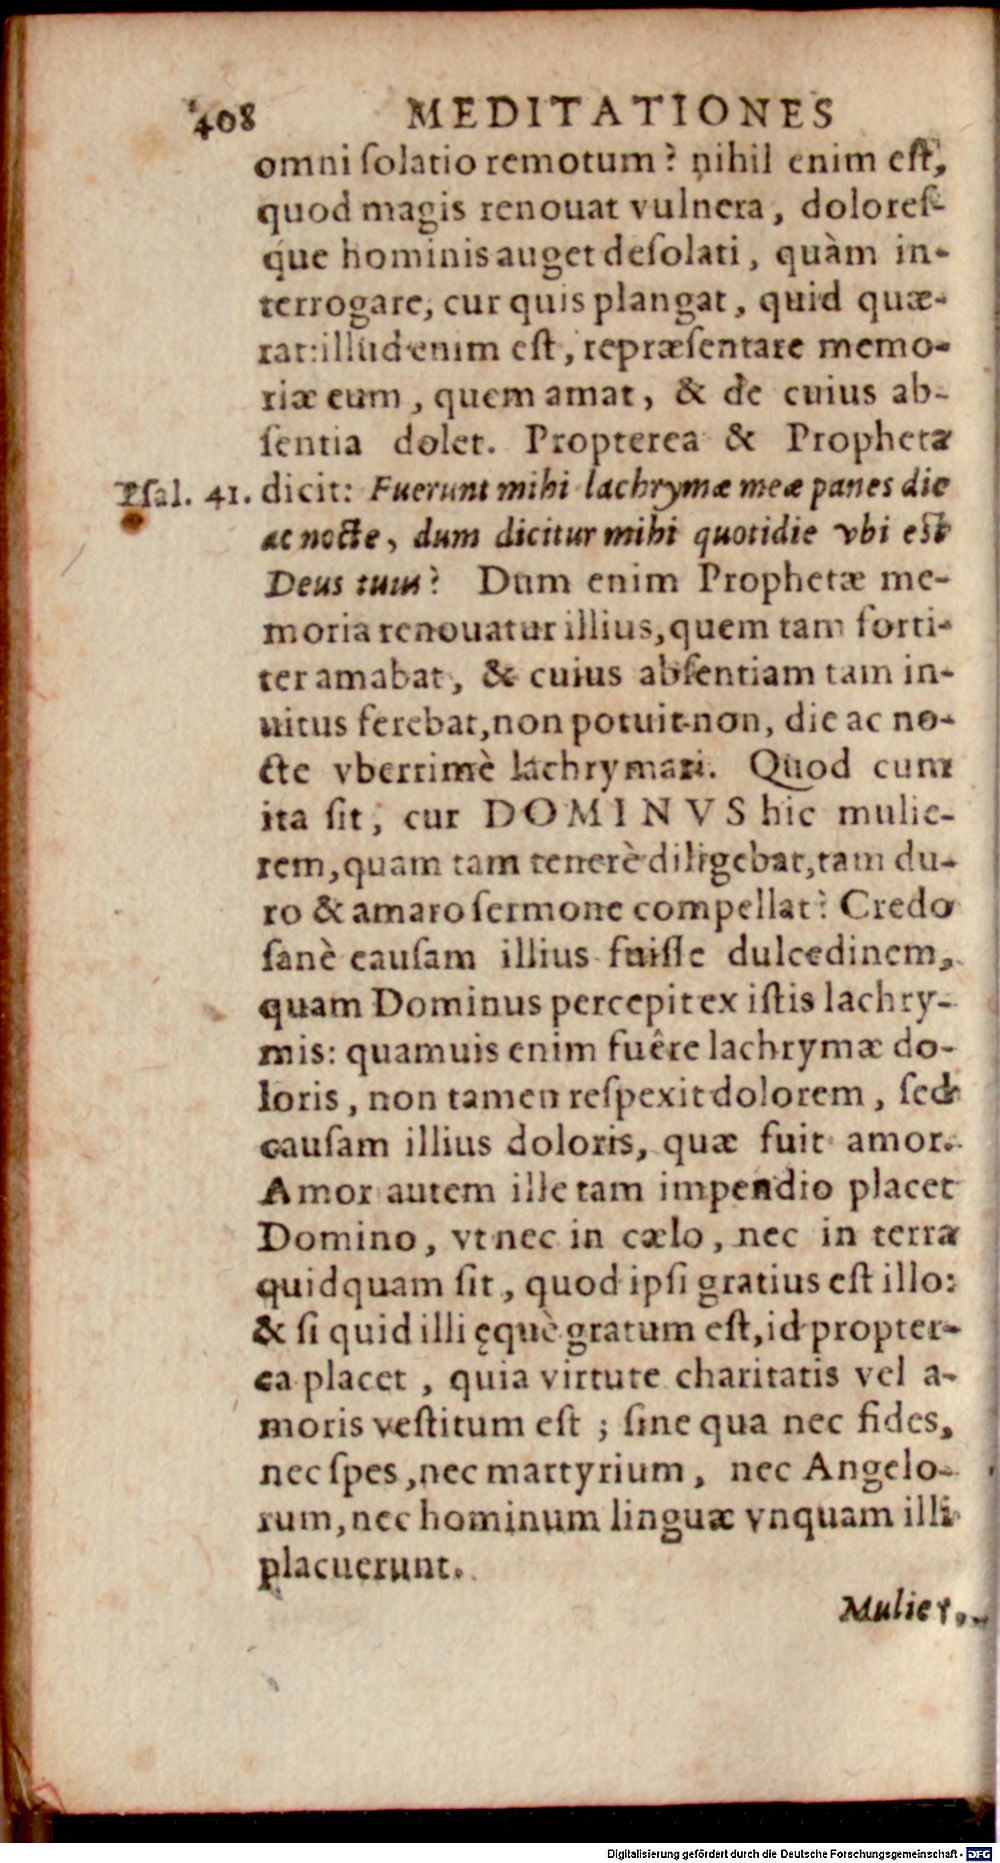 408 MEDITATIONES
omni ſolatio remotum? nihil enim eſt,
quod magis renouat vulnera, doloreſ-
que hominis auget deſolati, quàm in-
terrogare, cur quis plangat, quid quæ-
rat: illud enim eſt, repræſentare memo-
riæ eum, quem amat, & de cuius ab-
ſentia dolet. Propterea & Propheta
Pſal. 41. dicit: Fuerunt mihi lachrymæ meæ panes die
ac nocte, dum dicitur mihi quotidie vbi eſt
Deus tuus? Dum enim Prophetæ me-
moria renouatur illius, quem tam forti-
ter amabat, & cuius abſentiam tam in-
uitus ferebat, non potuit non, die ac no-
cte vberrimè lachrymari. Quod cum
ita ſit, cur DOMINVS hic mulie-
rem, quam tam tenerè diligebat, tam du-
ro & amaro ſermone compellat? Credo
ſanè cauſam illius fuiſſe dulcedinem,
quam Dominus percepit ex iſtis lachry-
mis: quamuis enim fuêre lachrymæ do-
loris, non tamen reſpexit dolorem, ſed
cauſam illius doloris, quæ fuit amor.
Amor autem ille tam impendio placet
Domino, vt nec in cælo, nec in terra
quidquam ſit, quod ipſi gratius eſt illo:
& ſi quid illi ęquè gratum eſt, id propter-
ea placet, quia virtute charitatis vel a-
moris veſtitum eſt; ſine qua nec fides,
nec ſpes, nec martyrium, nec Angelo-
rum, nec hominum linguæ vnquam illi
placuerunt.
Mulier,
Digitalisierung gefördert durch die Deutsche Forschungsgemeinschaft - DFG